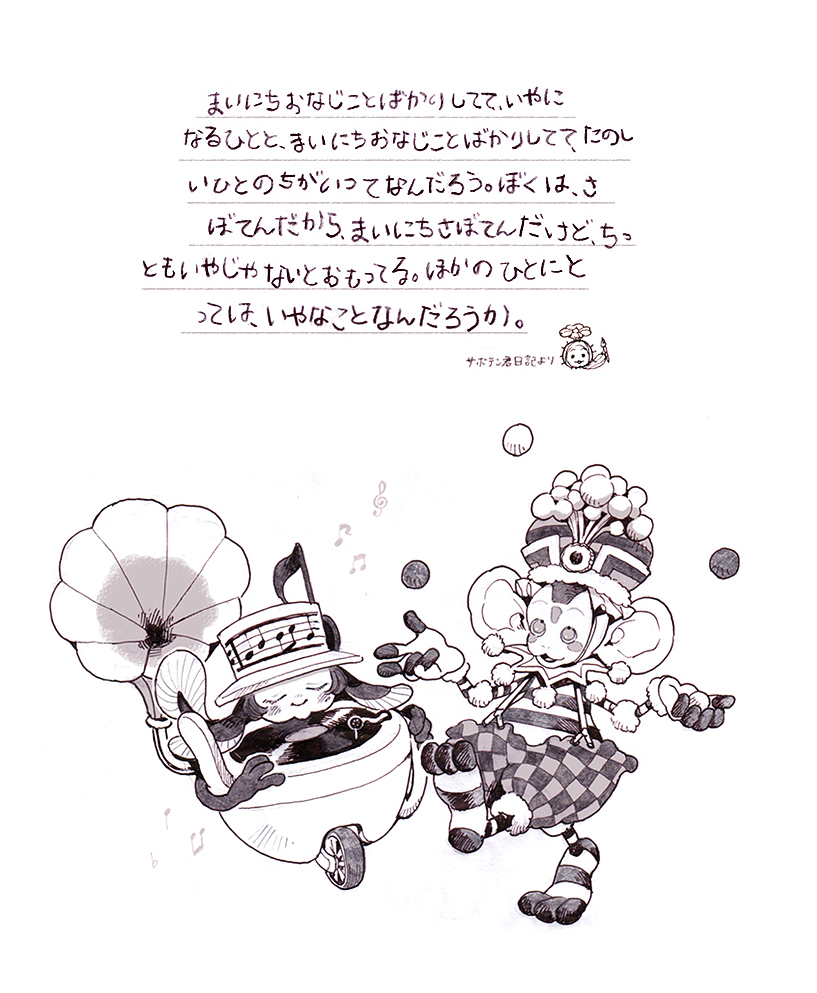 まいにちおなじことばかりしてて、いやに
なるひとと、まいにちおなじことばかりしてて、たのし
いひとのちがいってなんだろう。ぼくは、さ
ぼてんだから、まいにちさぼてんだけど、ちっ
ともいやじゃないとおもってる。ほかのひとにと
っては、いやなことなんだろうか。
サボテン君日記より